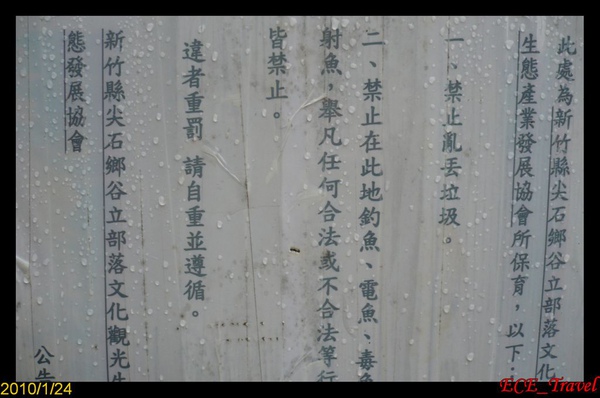 此處為新竹縣尖石鄉谷立部落文化
生態產業發展協會所保育，以下：
一、禁止亂丟垃圾。
二、禁止在此地釣魚、電魚、毒魚
射魚，舉凡任何合法或不合法等行
皆禁止。
違者重罰 請自重並遵循。
新竹縣尖石鄉谷立部落文化觀光生
態發展協會
公告
2010/1/24
ECE_Travel